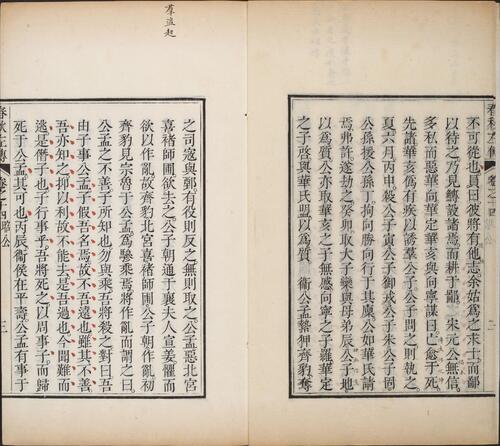 春秋左傳 卷之十四 昭公 二
不可從也員曰彼將有他志余姑爲之求士而鄙
以待之乃見鱄設諸焉而耕于鄙 宋元公無信
多私而惡華向華定華亥與向寧謀曰亡愈于死
先諸華亥僞有疾以誘羣公子公子問之則執之
夏六月丙申殺公子寅公子御戎公子朱公子固
公孫援公孫丁拘向勝向行于其廩公如華氏請
焉弗許遂劫之癸卯取大子欒與母弟辰公子地
以爲質公亦取華亥之子無慼向寧之子羅華定
之子啓與華氏盟以爲質 衞公孟縶狎齊豹奪
羣盜起
之司寇與鄄有役則反之無則取之公孟惡北宮
喜褚師圃欲去之公子朝通于襄夫人宣姜懼而
欲以作亂故齊豹北宮喜褚師圃公子朝作亂初
齊豹見宗魯于公孟爲驂乘焉將作亂而謂之曰
公孟之不善子所知也勿與乘吾將殺之對曰吾
由子事公孟子假吾名焉故不吾遠也雖其不善
吾亦知之抑以利故不能去是吾過也今聞難而
逃是僭子也子行事乎吾將死之以周事子而歸
死于公孟其可也丙辰衞侯在平壽公孟有事于
春秋左傳 卷之十四 昭公 三